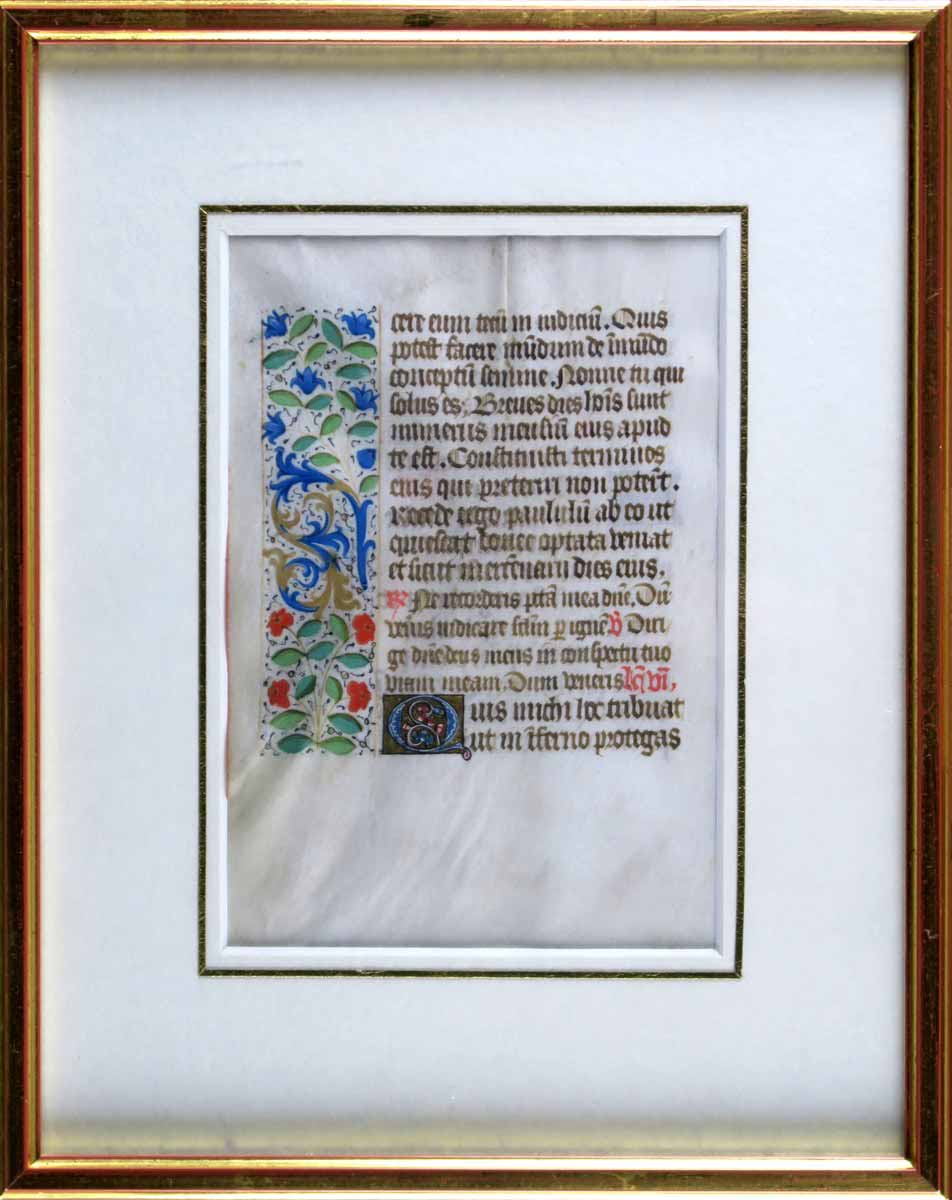 cere eum tecū in iudiciū. Quis
potest facere mūdum de īmūdo
conceptū semine. Nonne tu qui
solus es. Breues dies hoīs sunt
numerus mensiū eius apud
te est. Constituisti terminos
eius qui preteriri non poterūt.
Recede ergo paululū ab eo ut
quiescat donec optata veniat
et sicut mercenarii dies eius.
℟ Ne recorderis pctā mea dn̄e. Dū
veneris iudicare sclm̄ ꝑ ignē ℣ Diri
ge dn̄e deus meus in conspectu tuo
viam meam. Dum veneris lc̄ vi,
Quis michi hoc tribuat
ut in īferno protegas